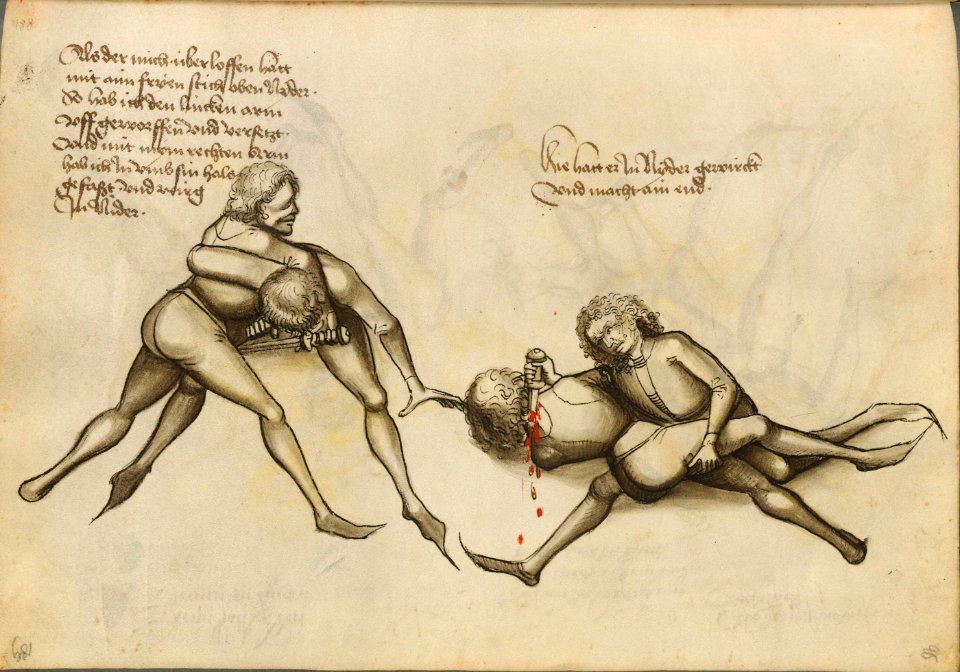 Als der mich überloffen hatt
mit aim fryen stich oben Nyder.
So hab ich den lincken arm
Vff geworffen vnd versetzt.
Vnd mit mem rechten
hab ich In vmb sin hals
gefaßt vnd wirg
In Nider.
Hie hatt er In Nyder gewirckt
vnd macht ain end.